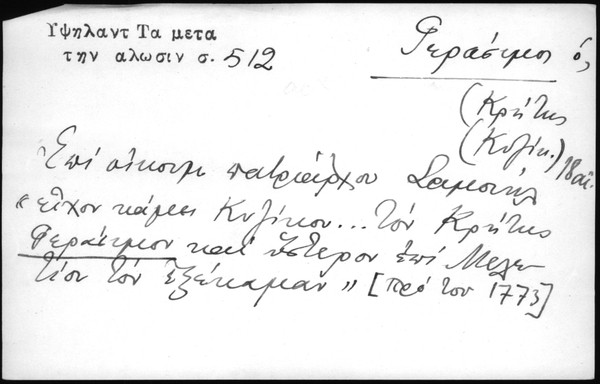 Υψηλαντ Τα μετα
την αλωσιν σ. 512
Γεράσιμος ὁ,
(Κρήτης
(Κυζίκ.) 18 αἰ.
Ἐπί οἰκουμ πατριάρχου Σαμουήλ
"εἶχον κάμει Κυζίκου... τόν Κρήτης
Γεράσιμον καί ὕστερον ἐπί Μελε
τίου τόν ἐξέκαμαν" [πρό του 1773]